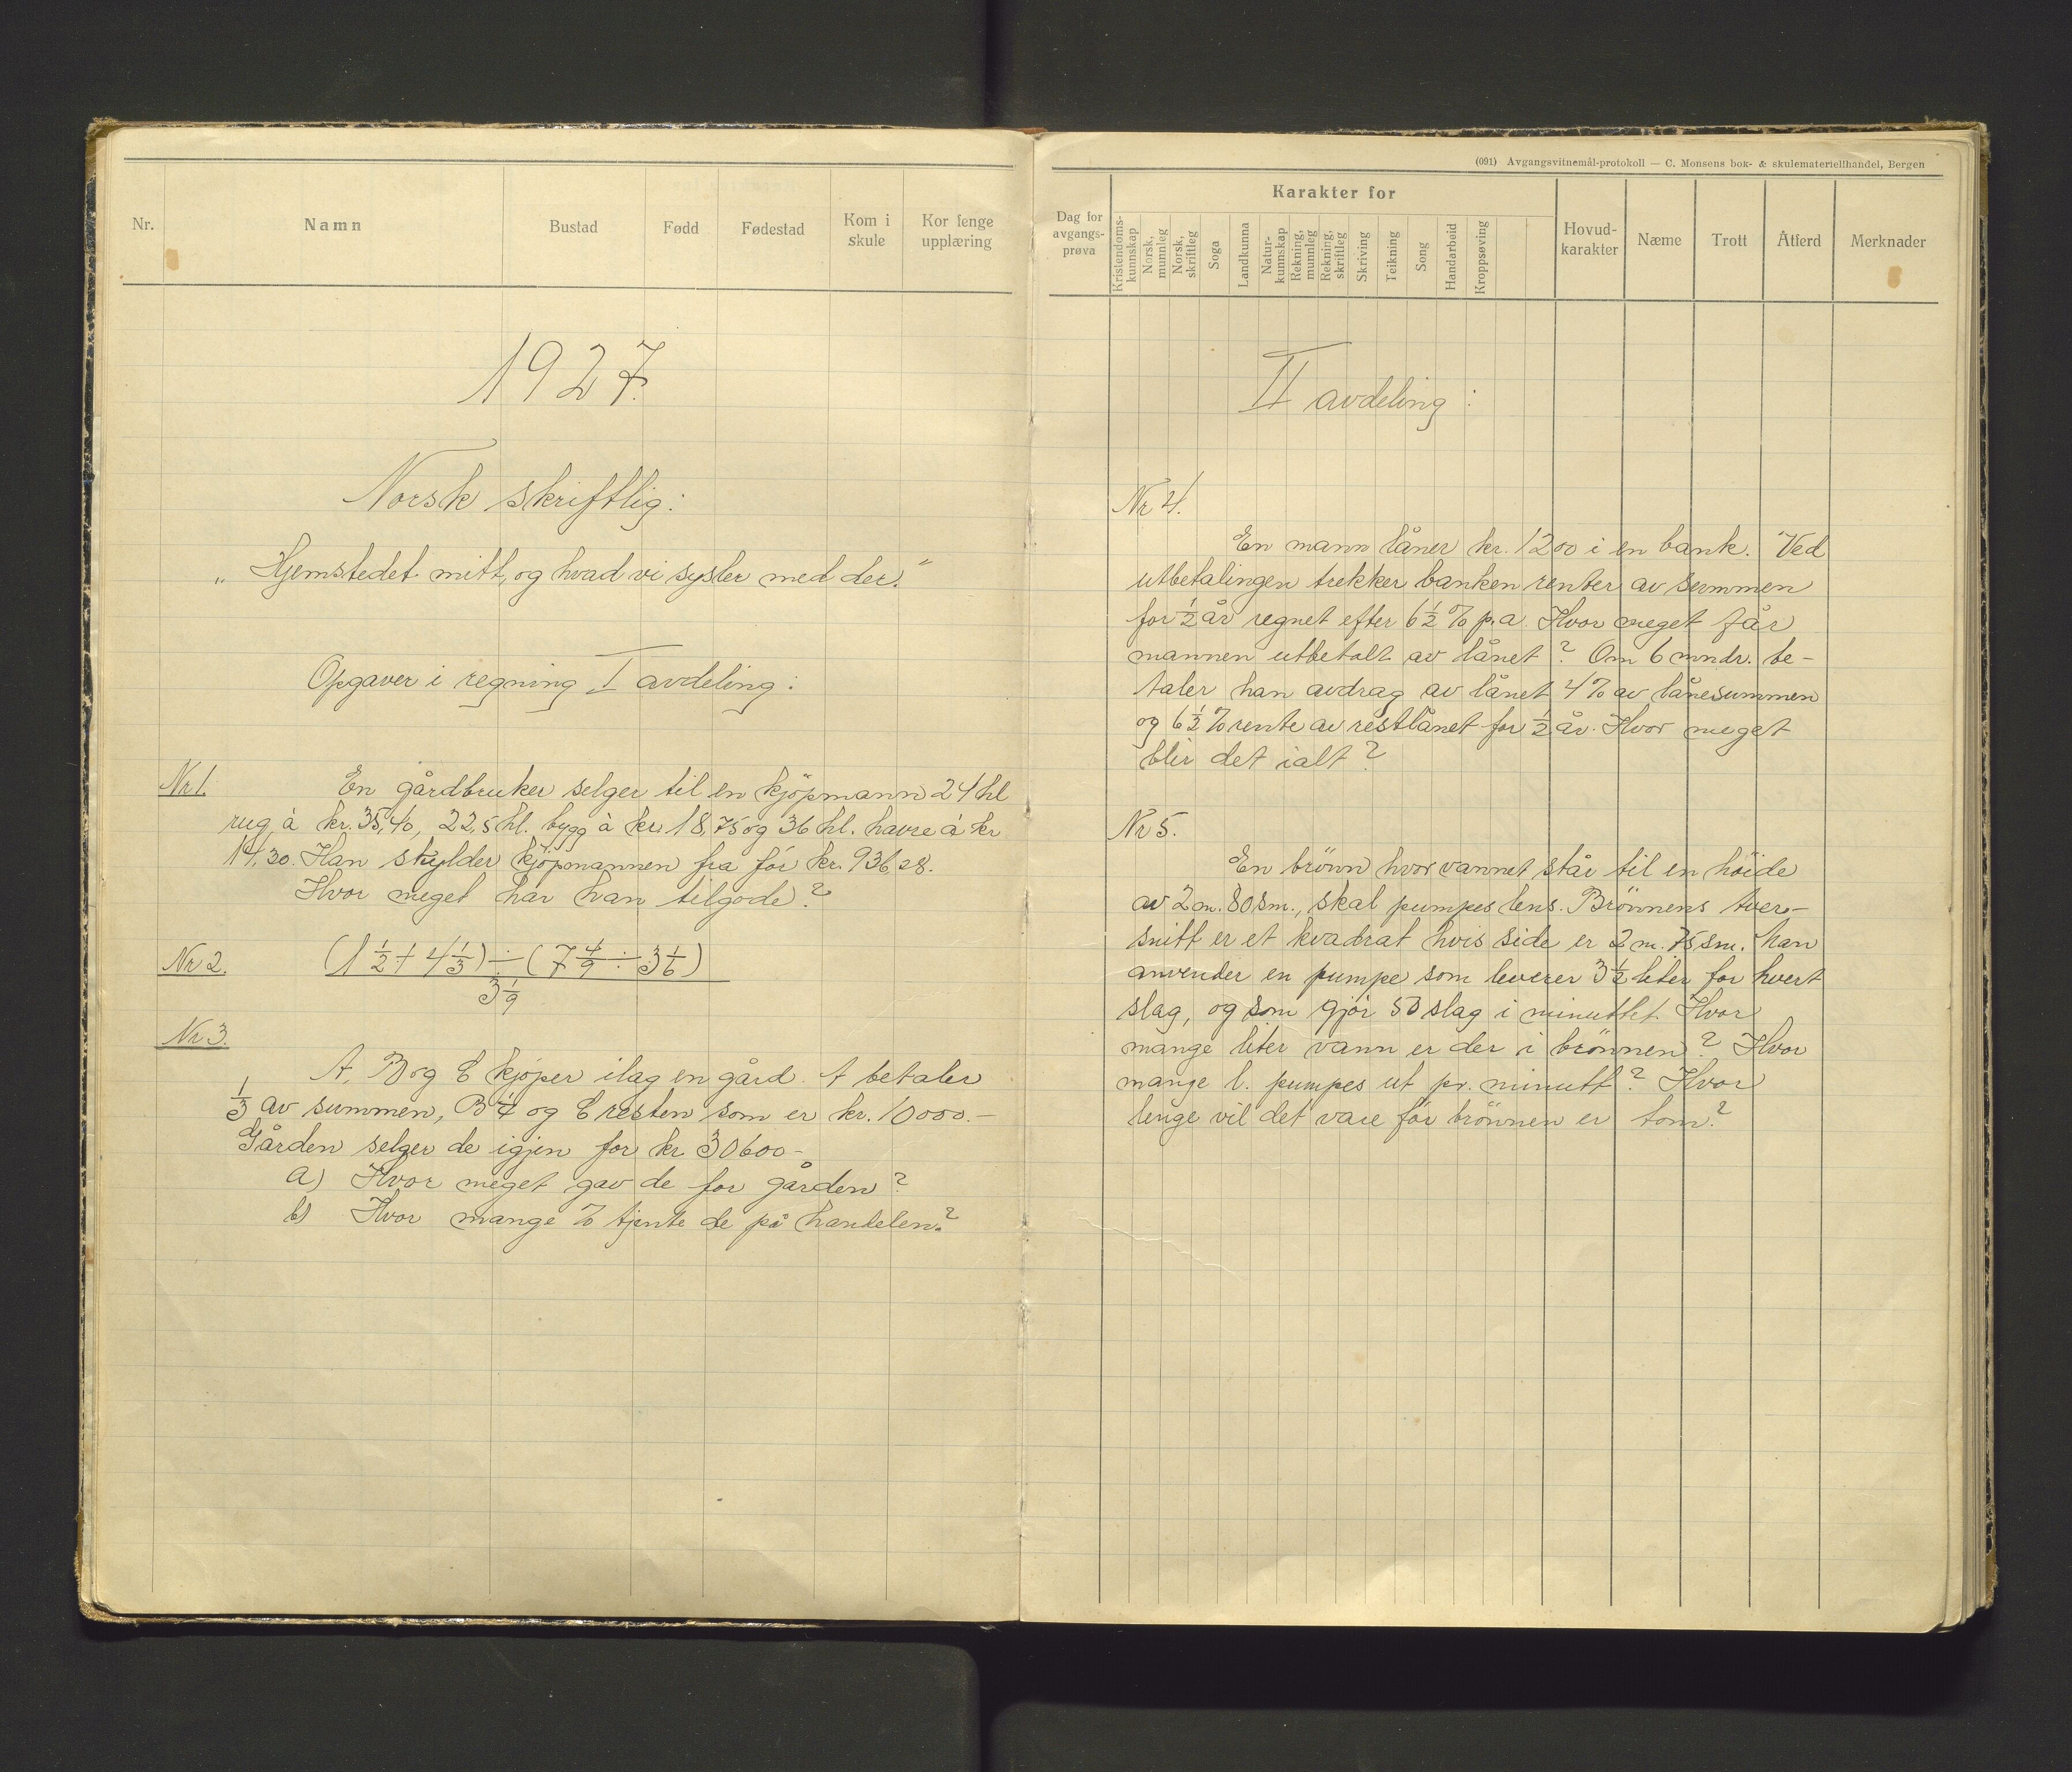 Nr.
Namn
Bustad
Fødd
Fødestad
Kom i
skule
Kor fenge
upplæring
1927.
Norsk skriftlig:
„Hjemstedet mitt, og hvad vi sysler med der."
Opgaver i regning I avdeling:
Nr 1. En gårdbruker selger til en kjöpmann 24 hl
rug à kr. 35,40, 22,5 hl. bygg à kr. 18,75 og 36 hl. havre à kr
14,30. Han skylder kjöpmannen fra för kr. 936,28.
Hvor meget har han tilgode?
Nr 2. (1 1/2 + 4 1/3) ÷ (7 4/9 ÷ 3 1/6)
3 1/9
Nr 3.
A, B og C kjöper ilag en gård. A betaler
1/3 av summen, B 1/4 og C resten som er kr. 10000.-
Gården selger de igjen for kr 30600-
a) Hvor meget gav de for gården?
b) Hvor mange % tjente de på handelen?
(091) Avgangsvitnemål-protokoll — C. Monsens bok- & skulemateriellhandel, Bergen
Dag for
avgangs-
prøva
Karakter for
Kristendoms-
kunnskap
Norsk,
munnleg
Norsk,
skriftleg
Soga
Landkunna
Natur-
kunnskap
Rekning,
munnleg
Rekning,
skriftleg
Skriving
Teikning
Song
Handarbeid
Kroppsøving
Hovud-
karakter
Næme
Trott
Åtferd
Merknader
II avdeling:
Nr 4.
En mann låner kr. 1200 i en bank. Ved
utbetalingen trekker banken renter av summen
for 1/2 år regnet efter 6 1/2 % p.a. Hvor meget får
mannen utbetalt av lånet? Om 6 mndr. be-
taler han avdrag av lånet 4% av lånesummen
og 6 1/2 % rente av restlånet for 1/2 år. Hvor meget
blir det ialt?
Nr 5.
En brönn hvor vannet står til en höide
av 2 m. 80 sm., skal pumpes lens. Brönnens tver-
snitt er et kvadrat hvis side er 2 m. 75 sm. Man
anvender en pumpe som leverer 3 1/2 liter for hvert
slag, og som gjör 50 slag i minuttet. Hvor
mange liter vann er der i brönnen? Hvor
mange l. pumpes ut pr. minutt? Hvor
lenge vil det vare för brönnen er tom?